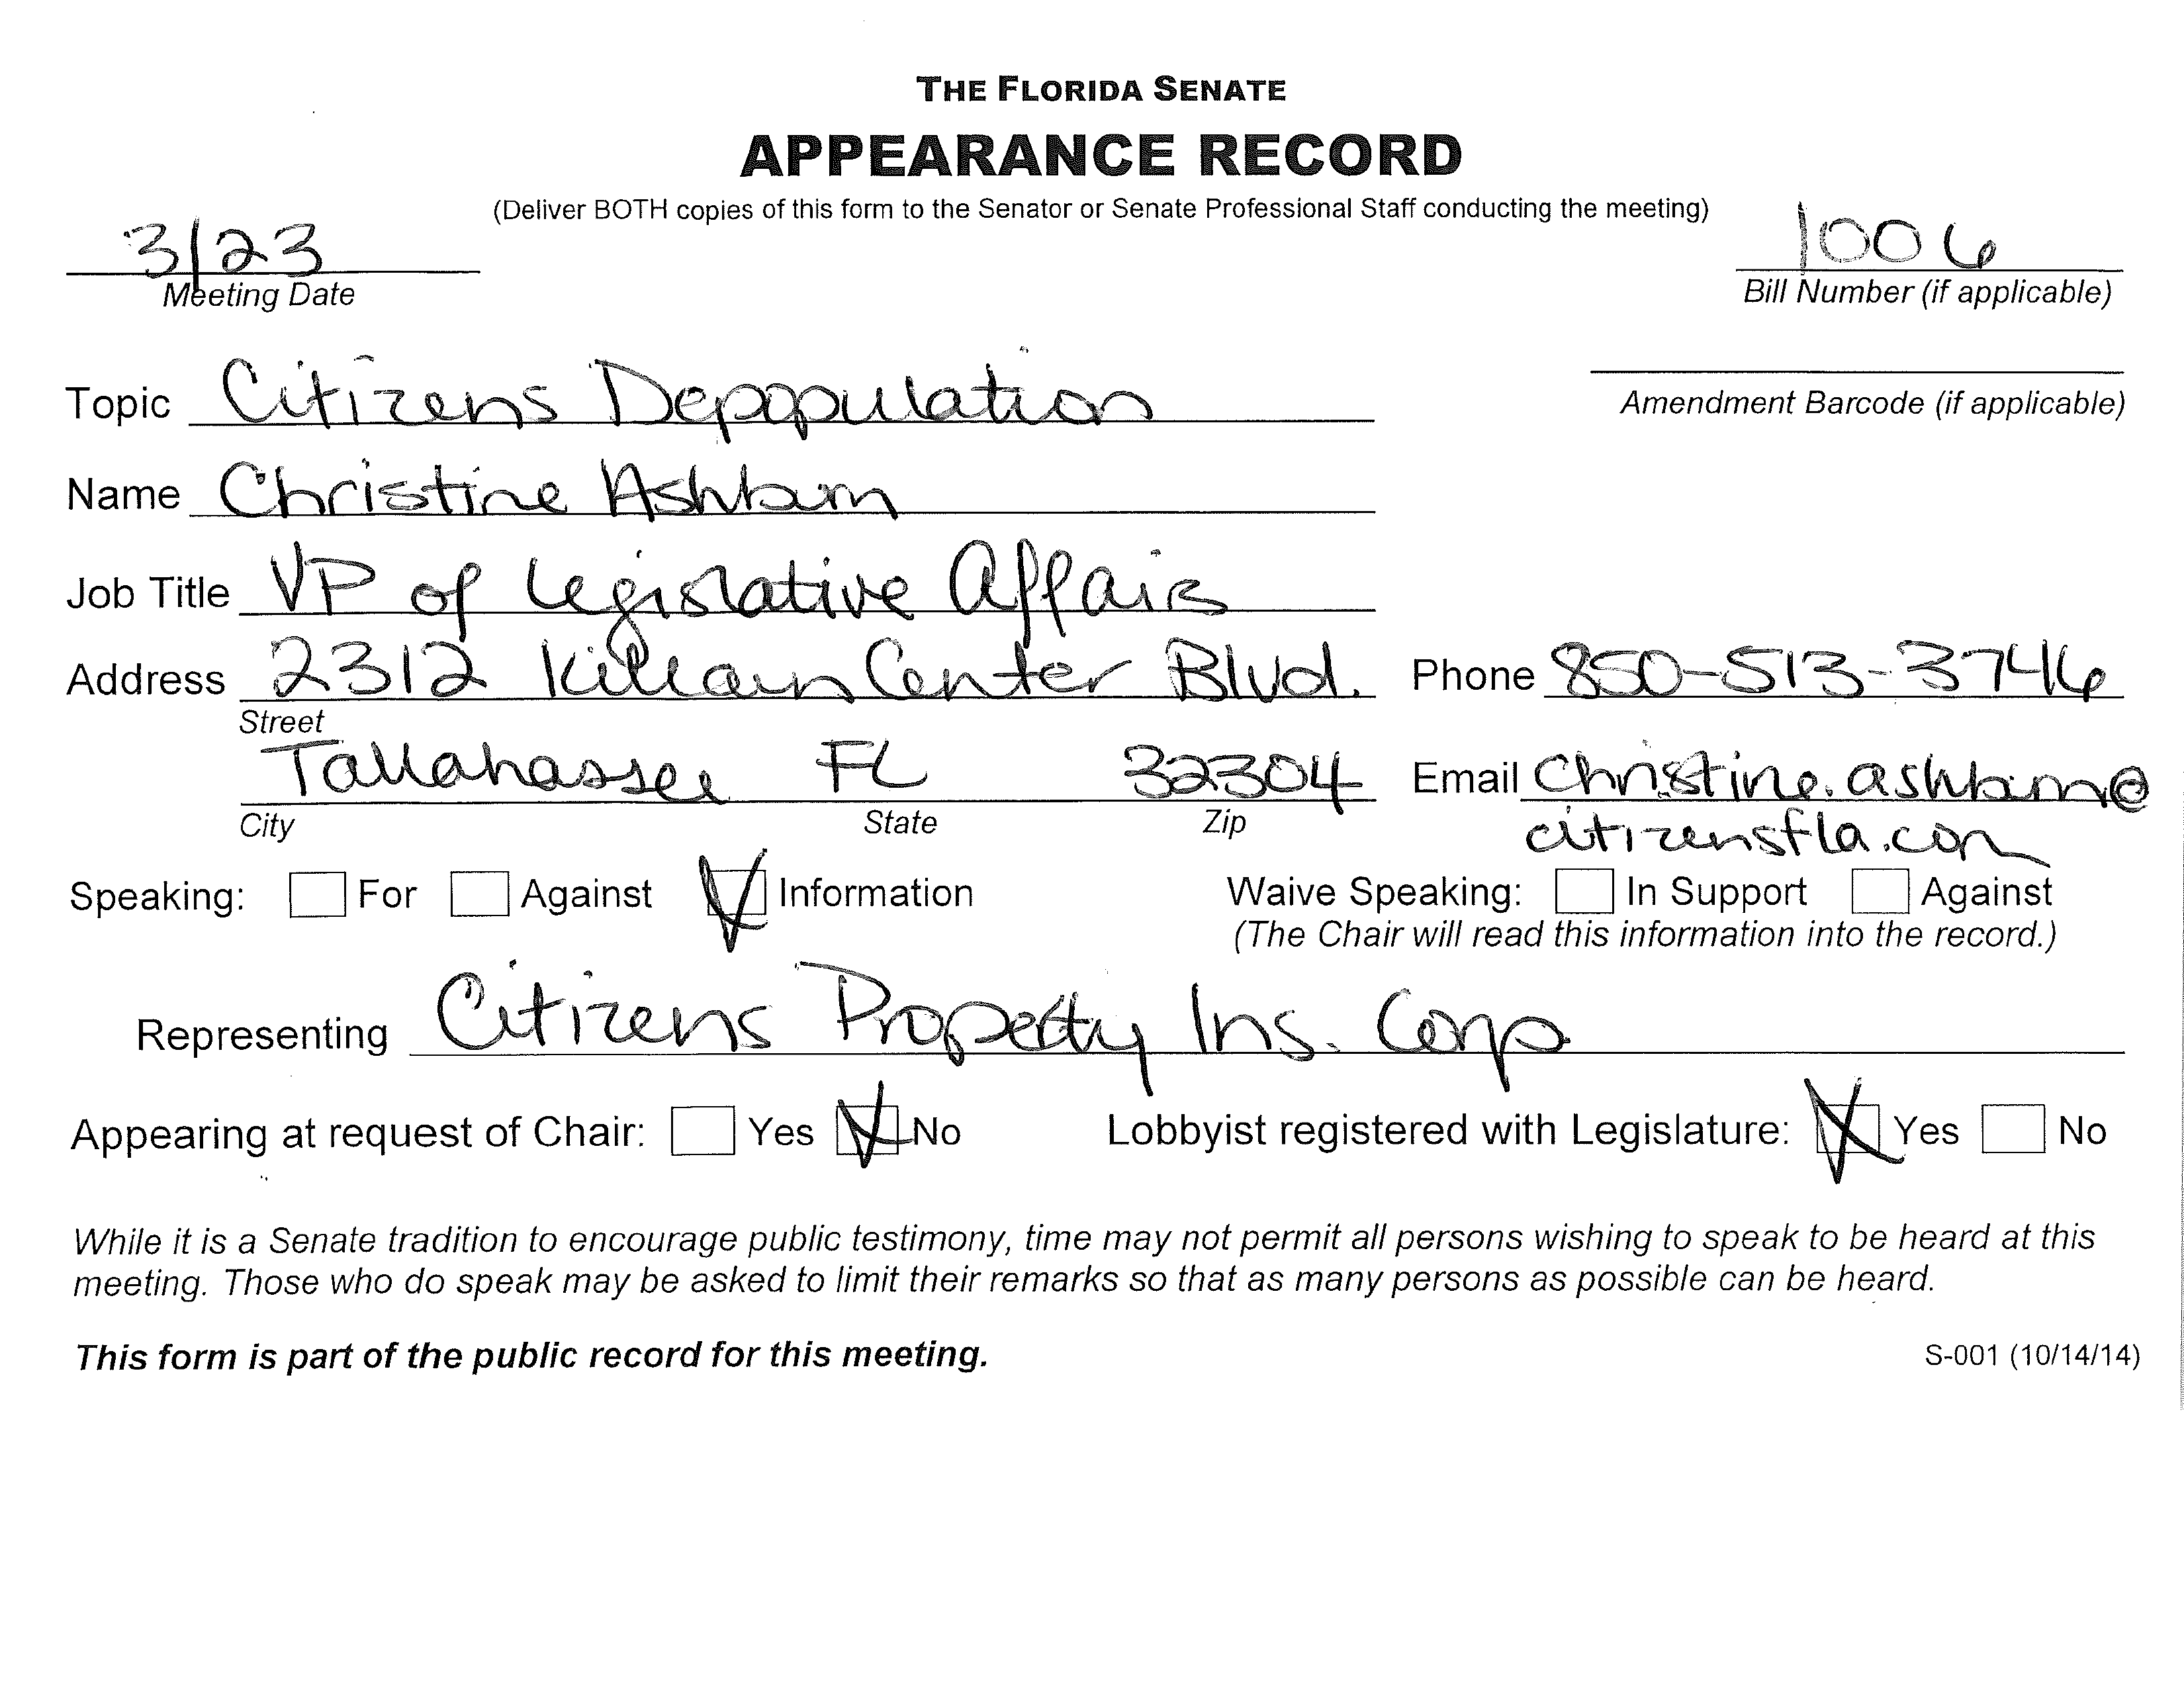 THE FLORIDA SENATE
APPEARANCE RECORD
(Deliver BOTH copies of this form to the Senator or Senate Professional Staff conducting the meeting)
3/23
Meeting Date
1006
Bill Number (if applicable)
Amendment Barcode (if applicable)
Topic Citizens Depopulation
Name Christine Ashburn
Job Title VP of Legislative Affairs
Address 2312 Killearn Center Blvd. Phone 850-513-3746
Street
Tallahassee FL 32304 Email Christine.ashburn@
City State Zip citizensfla.com
Speaking: For Against Information Waive Speaking: In Support Against
(The Chair will read this information into the record.)
Representing Citizens Property Ins. Corp
Appearing at request of Chair: Yes No Lobbyist registered with Legislature: Yes No
While it is a Senate tradition to encourage public testimony, time may not permit all persons wishing to speak to be heard at this
meeting. Those who do speak may be asked to limit their remarks so that as many persons as possible can be heard.
This form is part of the public record for this meeting. S-001 (10/14/14)